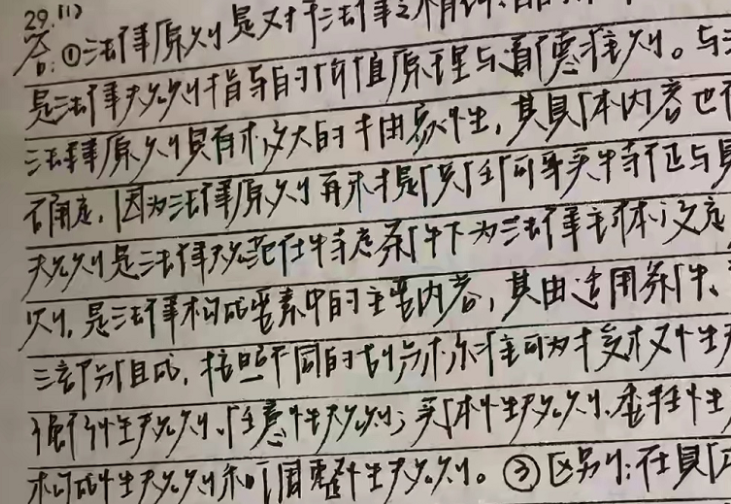 29.(1)
答:①法律原则是对于法律之
是法律规则指导的价值原理与道德准则。与
法律原则具有极大的抽象性,其具体内容也
不确定,因为法律原则并未提供任何事实特征与
规则是法律规范在特定条件下为法律主体设定
则,是法律构成要素中的主要内容,其由适用条件、
三部分组成,按照不同的划分标准可为授权性
强行性规则、任意性规则;实体性规则、委任性
构成性规则和调整性规则。③区别:在具